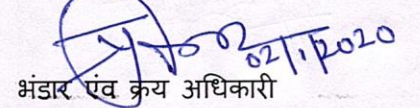 02/1/2020
भंडार एंव क्रय अधिकारी